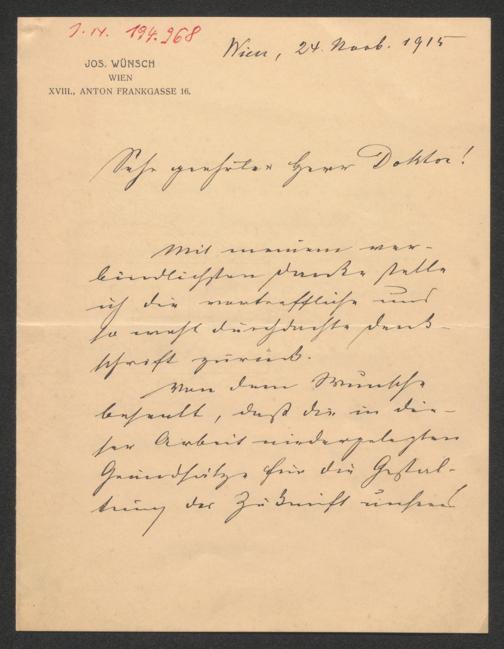 J.N. 194.968
Wien, 24. Novb. 1915
JOS. WÜNSCH
WIEN
XVIII., ANTON FRANKGASSE 16.
Sehr geehrter Herr Doktor!
Mit meinem ver-
bindlichsten Danke stelle
ich die vortreffliche und
so wohl durchdachte Denk-
schrift zurück.
Von dem Wunsche
beseelt, daß die in die-
ser Arbeit niedergelegten
Grundsätze für die Gestal-
tung der Zukunft unseres